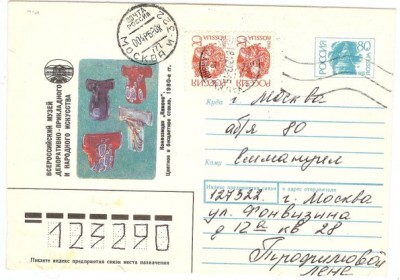 ВСЕРОССИЙСКИЙ МУЗЕЙ
ДЕКОРАТИВНО-ПРИКЛАДНОГО
И НАРОДНОГО ИСКУССТВА
Цветное и бесцветное стекло, 1980-е гг.
ПОЧТА
РОССИИ
МОСКВА
РОССИЯ
80
Куда г. Москва
абя 80
Кому Еммануил
Индекс предприятия связи и адрес отправителя
127322 г. Москва
ул. Фонвизина
д 12а кв 28
Трофимовой
Лене
123290
Пишите индекс предприятия связи места назначения